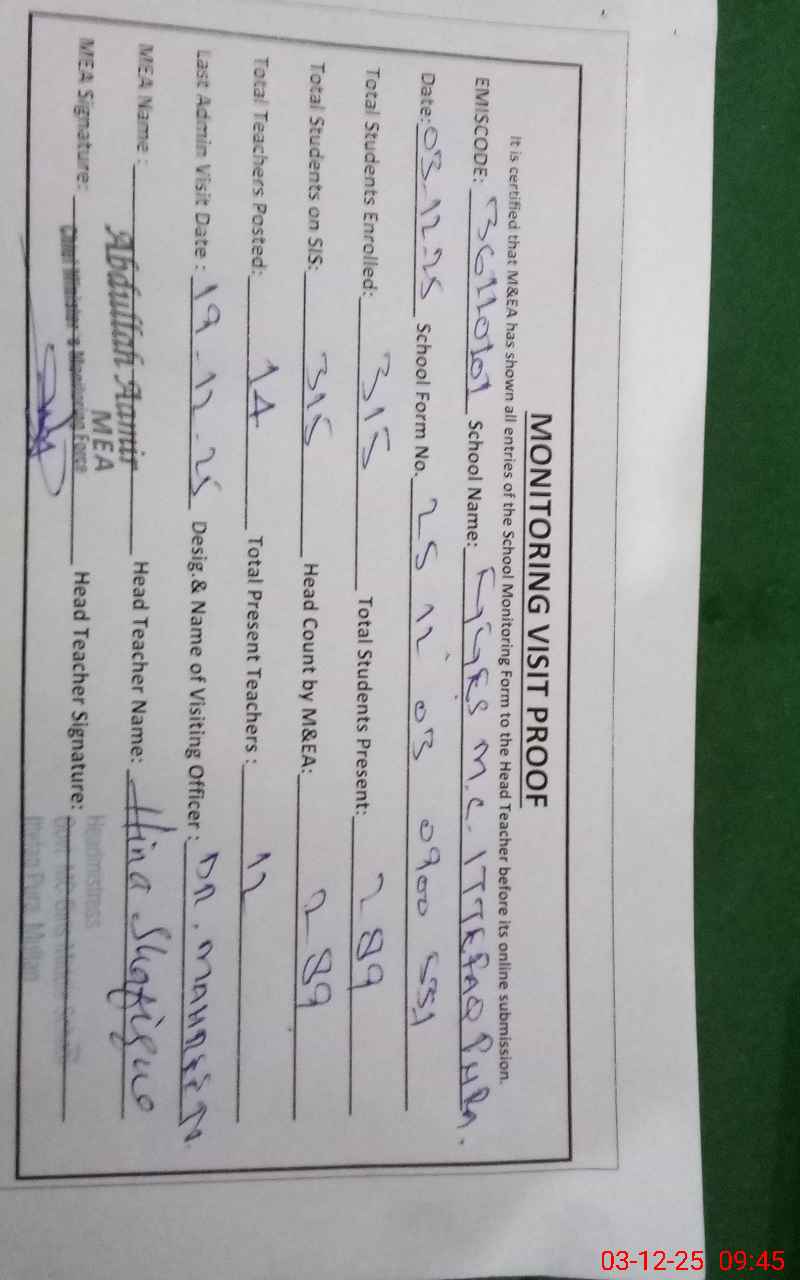 MONITORING VISIT PROOF
It is certified that M&EA has shown all entries of the School Monitoring Form to the Head Teacher before its online submission.
EMISCODE: 36110101 School Name: M.C. ITTEFAQ PURA.
Date: 03-12-25 School Form No. 25 12 03 0900 531
Total Students Enrolled: 315 Total Students Present: 289
Total Students on SIS: 315 Head Count by M&EA: 289
Total Teachers Posted: 14 Total Present Teachers : 12
Last Admin Visit Date : 19-12-25 Desig.& Name of Visiting Officer : DR.
MEA Name : Abdullah Aamir Head Teacher Name: Hina Shafique
MEA
MEA Signature: Chief Minister's Monitoring Force Head Teacher Signature:
Headmistress
Pura Multan
03-12-25 09:45